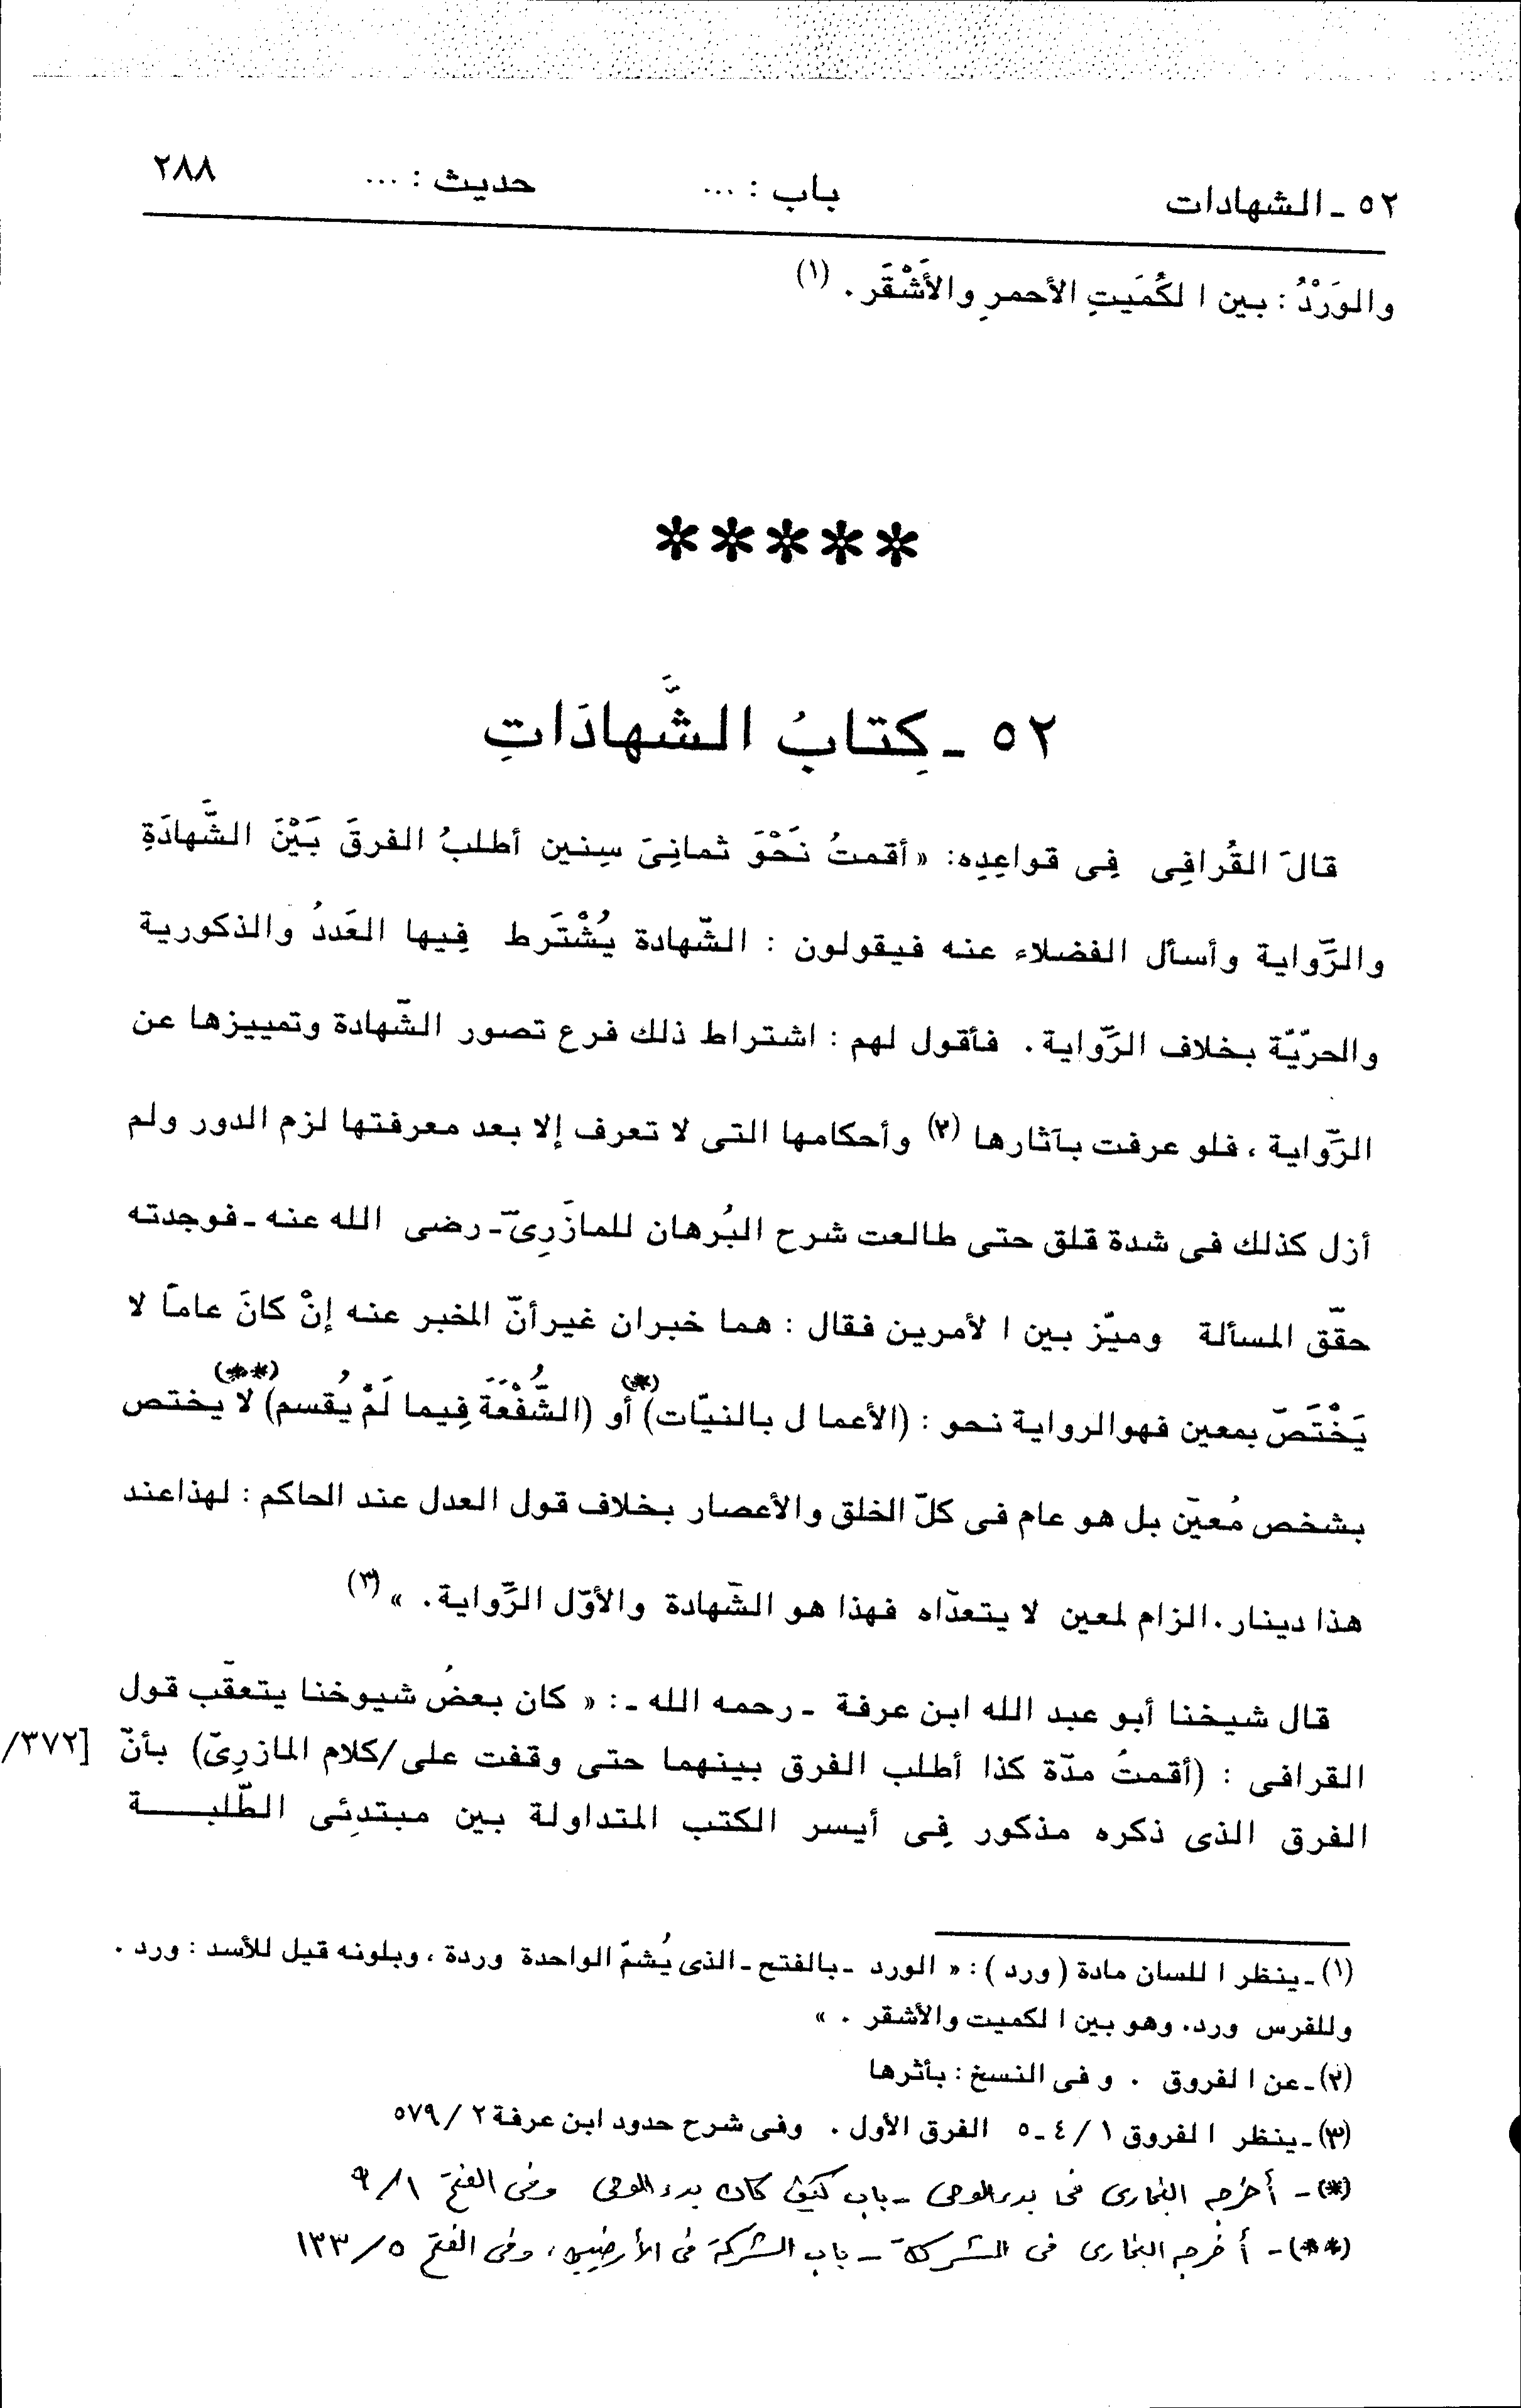 ٥٢ ـ الشهادات باب : ... حديث : ... ٢٨٨
والوَرْدُ : بين الكُمَيتِ الأحمرِ والأَشْقَر . (١)
*****
٥٢ ـ كِتابُ الشَّهادَاتِ
قالَ القُرافِى فِى قواعِدِه: « أقمتُ نَحْوَ ثمانِىَ سِنين أطلبُ الفرقَ بَيْنَ الشَّهادَةِ
والرَّواية وأسأل الفضلاء عنه فيقولون : الشّهادة يُشْتَرط فِيها العَددُ والذكورية
والحرّيّة بخلاف الرَّواية . فأقول لهم : اشتراط ذلك فرع تصور الشّهادة وتمييزها عن
الرَّواية ، فلو عرفت بآثارها (٢) وأحكامها التى لا تعرف إلا بعد معرفتها لزم الدور ولم
أزل كذلك فى شدة قلق حتى طالعت شرح البُرهان للمازَرِىّ ـ رضى الله عنه ـ فوجدته
حقّق المسألة وميّز بين الأمرين فقال : هما خبران غير أنّ المخبر عنه إنْ كانَ عاماً لا
يَخْتَصّ بمعين فهو الرواية نحو : (الأعمال بالنيّات) (*) أو (الشُّفْعَةَ فِيما لَمْ يُقسم) (**) لا يختص
بشخص مُعيّن بل هو عام فى كلّ الخلق والأعصار بخلاف قول العدل عند الحاكم : لهذا عند
هذا دينار . الزام لمعين لا يتعدّاه فهذا هو الشّهادة والأوّل الرَّواية . » (٣)
قال شيخنا أبو عبد الله ابن عرفة ـ رحمه الله ـ : « كان بعضُ شيوخنا يتعقّب قول
القرافى : (أقمتُ مدّة كذا أطلب الفرق بينهما حتى وقفت على/كلام المازرِىّ) بأنّ [٣٧٢/
الفرق الذى ذكره مذكور فِى أيسر الكتب المتداولة بين مبتدِئى الطّلبــــة
(١) ـ ينظر اللسان مادة ( ورد ) : « الورد ـ بالفتح ـ الذى يُشمّ الواحدة وردة ، وبلونه قيل للأسد : ورد .
وللفرس ورد. وهو بين الكميت والأشقر . »
(٢) ـ عن الفروق . وفى النسخ : بأثرها
(٣) ـ ينظر الفروق ١/ ٤ ـ ٥ الفرق الأول . وفى شرح حدود ابن عرفة ٢/ ٥٧٩
(*) ـ أخرجه البخارى فى بدء الوحى ـ باب كيف كان بدء الوحى وفى الفتح ١/ ٩
(**) ـ أخرجه البخارى فى الشركة ـ باب الشركة فى الأرضين ، وفى الفتح ٥/ ١٣٣